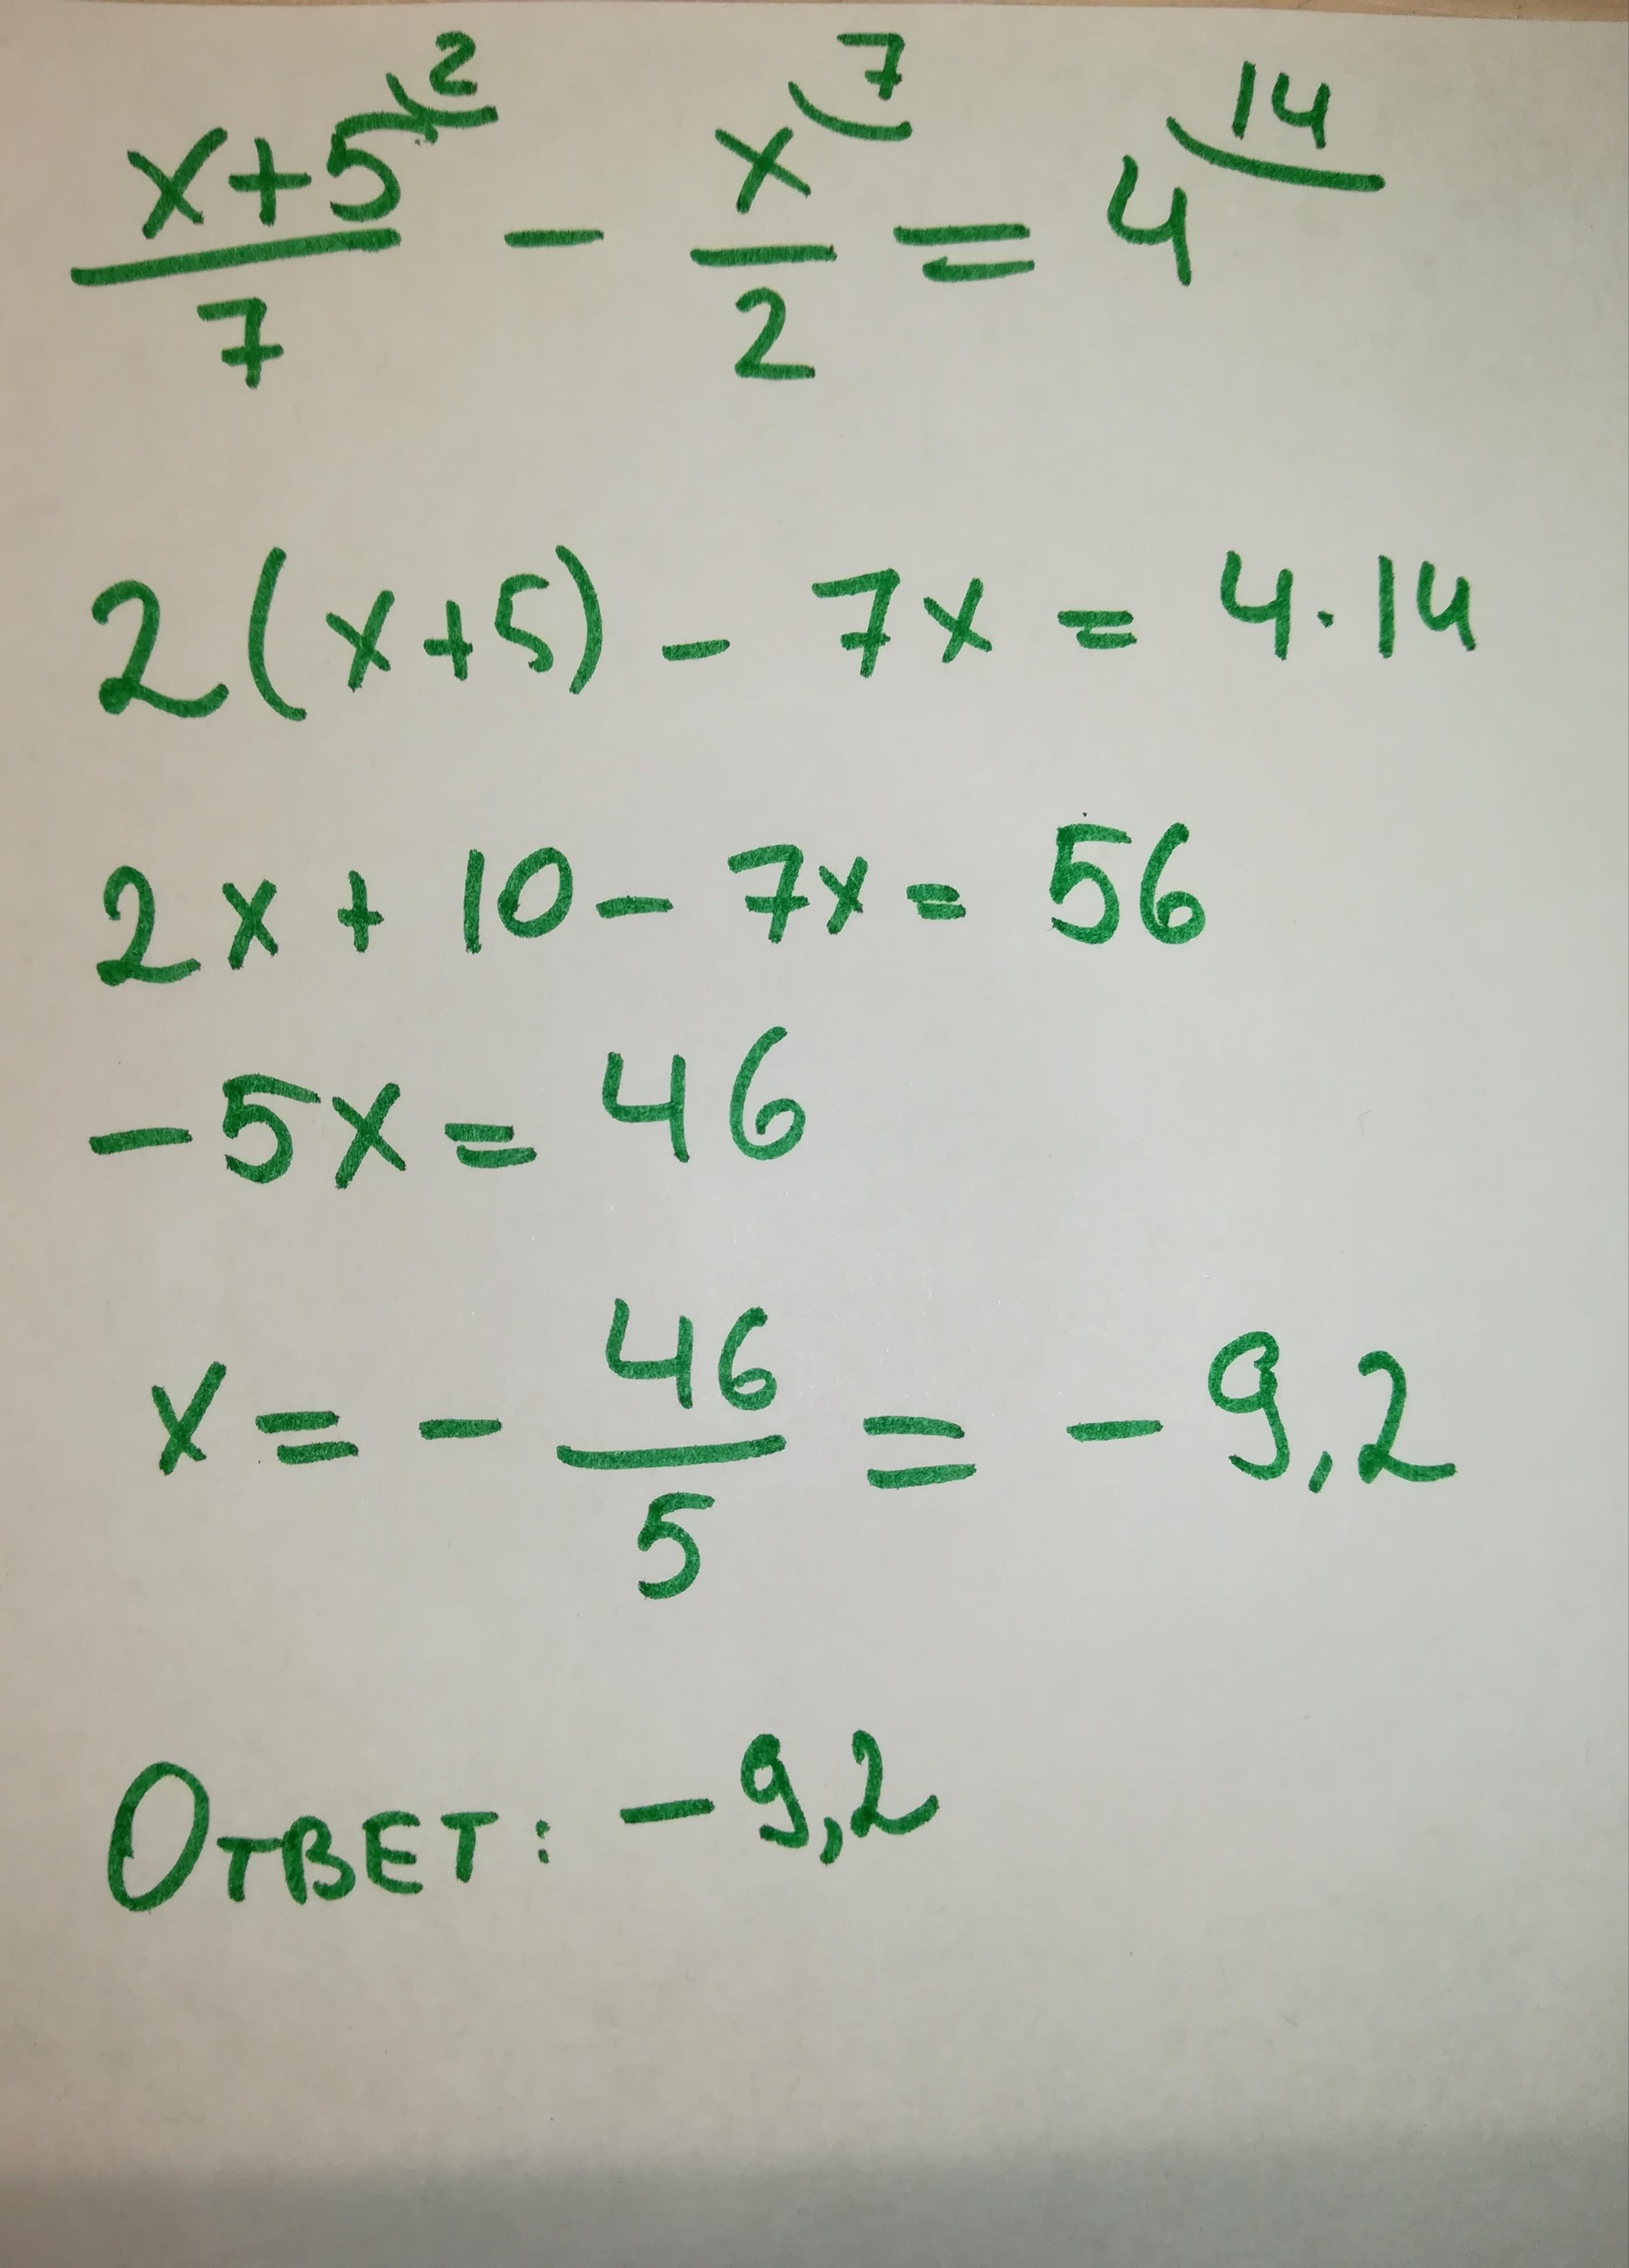 (x+5)/7 ^2 − x/2 ^7 = 4 ^14
2(x+5) − 7x = 4·14
2x + 10 − 7x = 56
−5x = 46
x = − 46/5 = −9,2
Ответ: −9,2